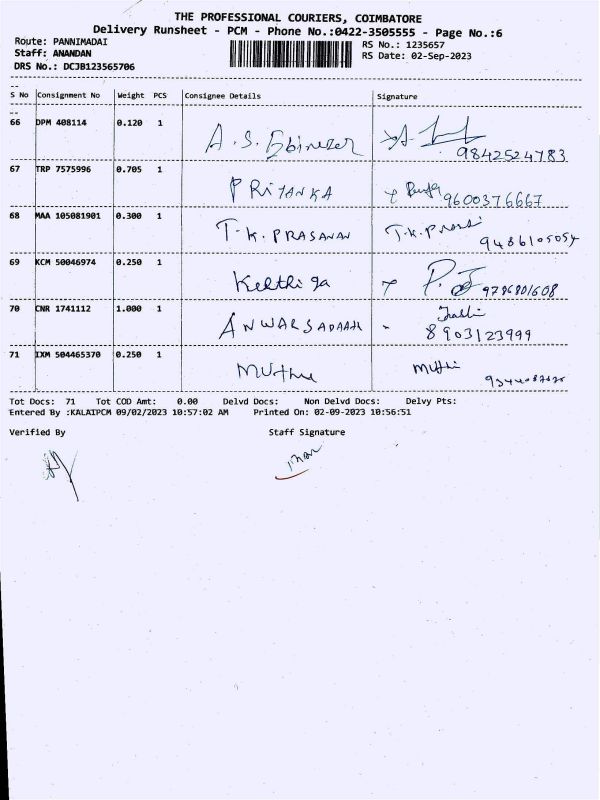 THE PROFESSIONAL COURIERS, COIMBATORE
Delivery Runsheet - PCM - Phone No.:0422-3505555 - Page No.:6
Route: PANNIMADAI RS No.: 1235657
Staff: ANANDAN RS Date: 02-Sep-2023
DRS No.: DCJB123565706
--
S No Consignment No Weight PCS Consignee Details Signature
--
66 DPM 408114 0.120 1 A.S. Ebinezer
9842524783
67 TRP 7575996 0.705 1 PRIYANKA 9600376667
68 MAA 105081901 0.300 1 T.K. PRASANAN T.K.
9486105054
69 KCM 50046974 0.250 1 Keerthiga
70 CNR 1741112 1.000 1 ANWARSADAAH
8903123999
71 IXM 504465370 0.250 1 Muthu
Tot Docs: 71 Tot COD Amt: 0.00 Delvd Docs: Non Delvd Docs: Delvy Pts:
Entered By :KALAIPCM 09/02/2023 10:57:02 AM Printed On: 02-09-2023 10:56:51
Verified By Staff Signature